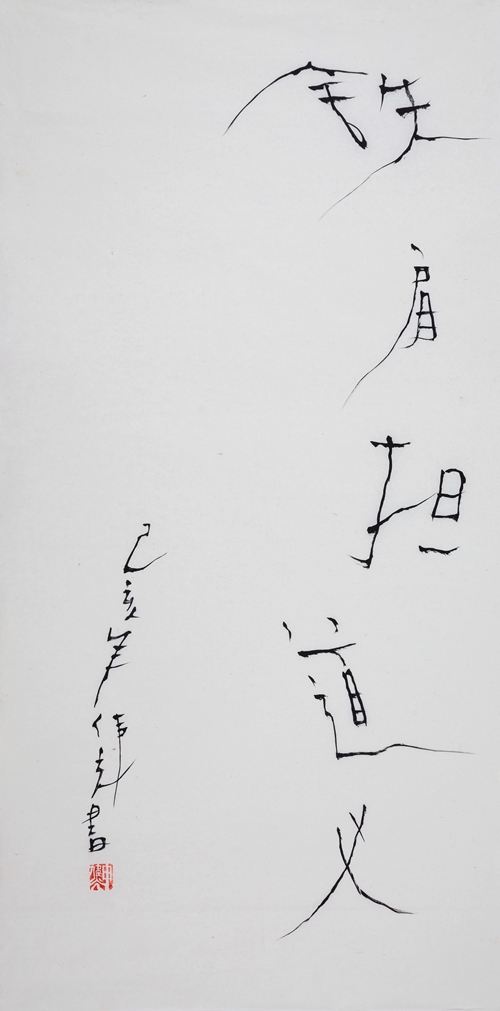 铁肩担道义
己亥年伟彪書